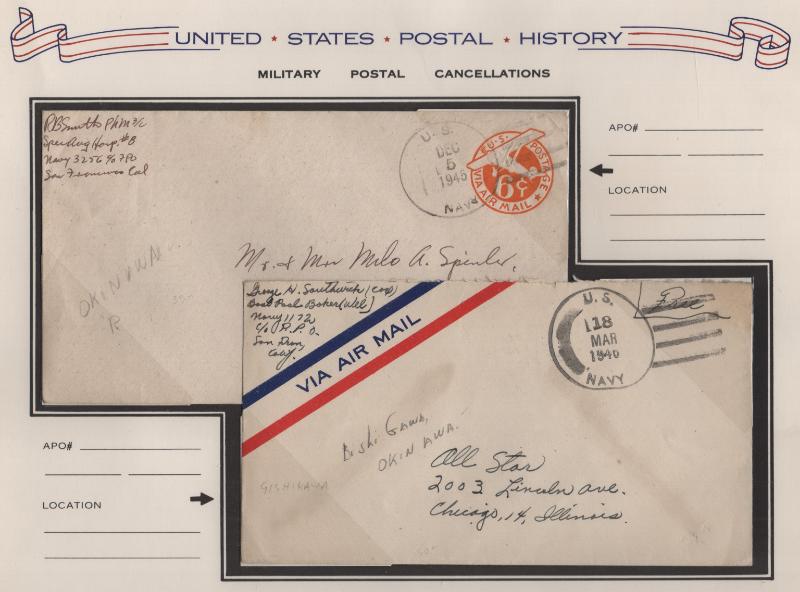 UNITED ★ STATES ★ POSTAL ★ HISTORY
MILITARY POSTAL CANCELLATIONS
RBSmith PhM 3/c
Spec Aug Hosp. #8
Navy 3256 % FPO
San Francisco Cal
U.S.
DEC
5
1945
NAVY
U.S. POSTAGE
6¢
VIA AIR MAIL
OKINAWA
R
Mr. & Mrs Milo A.
APO#
LOCATION
George H. Southwick (Cox)
Navy 1172
C/o F.P.O.
San Fran,
Calif.
VIA AIR MAIL
U.S.
18
MAR
1946
NAVY
Free
Bishi Gawa,
OKINAWA.
GISHIKAWA
All Star
2003 Lincoln ave.
Chicago, 14, Illinois.
APO#
LOCATION